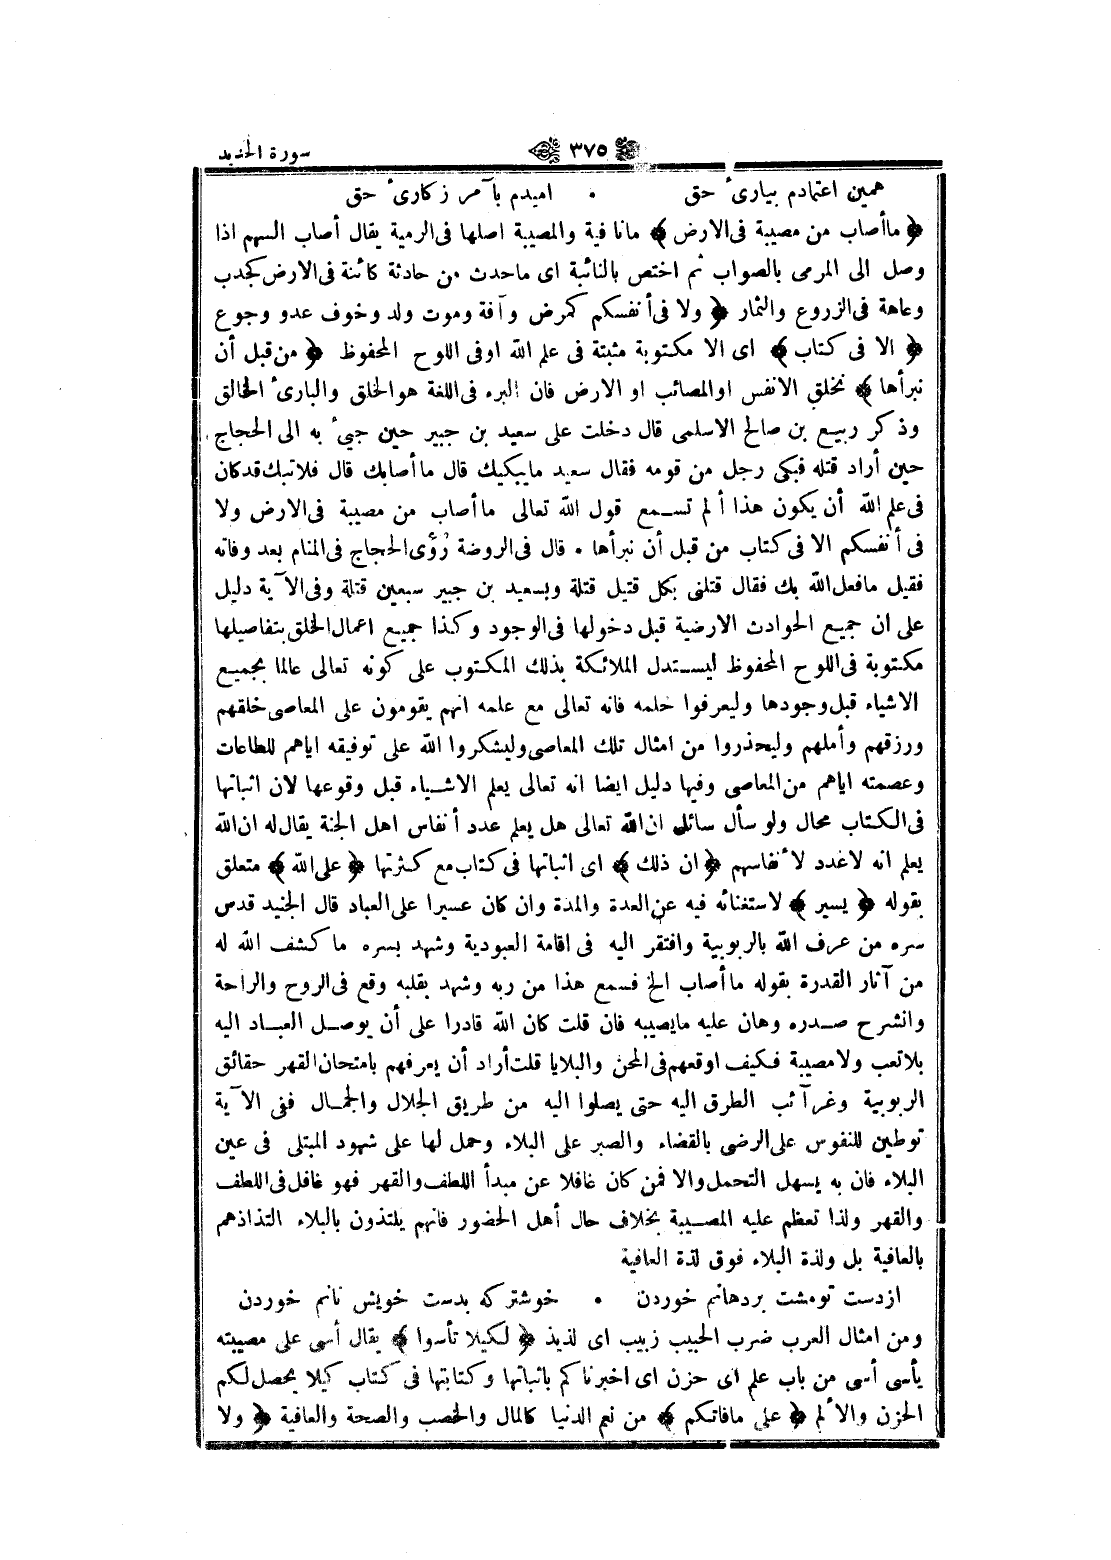 سورة الحديد ٣٧٥
همين اعتمادم بيارىٔ حق • اميدم بآمر زكارىٔ حق
﴿ ما أصاب من مصيبة فى الارض ﴾ مانافية والمصيبة اصلها فى الرمية يقال أصاب السهم اذا
وصل الى المرمى بالصواب ثم اختص بالنائبة اى ماحدث من حادثة كائنة فى الارض كجدب
وعاهة فى الزروع والثمار ﴿ ولا فى أنفسكم كمرض وآفة وموت ولد وخوف عدو وجوع
﴿ الا فى كتاب ﴾ اى الا مكتوبة مثبتة فى علم الله اوفى اللوح المحفوظ ﴿ من قبل أن
نبرأها ﴾ نخلق الانفس اوالمصائب او الارض فان البرء فى اللغة هو الخلق والبارىٔ الخالق
وذكر ربيع بن صالح الاسلمى قال دخلت على سعيد بن جبير حين جىٔ به الى الحجاج
حين أراد قتله فبكى رجل من قومه فقال سعيد مايبكيك قال ما أصابك قال فلاتبك قدكان
فى علم الله أن يكون هذا ألم تسمع قول الله تعالى ما أصاب من مصيبة فى الارض ولا
فى أنفسكم الا فى كتاب من قبل أن نبرأها • قال فى الروضة رُؤى الحجاج فى المنام بعد وفاته
فقيل مافعل الله بك فقال قتلنى بكل قتيل قتلة وبسعيد بن جبير سبعين قتلة وفى الآية دليل
على ان جميع الحوادث الارضية قبل دخولها فى الوجود وكذا جميع اعمال الخلق بتفاصيلها
مكتوبة فى اللوح المحفوظ ليستدل الملائكة بذلك المكتوب على كونه تعالى عالما بجميع
الاشياء قبل وجودها وليعرفوا حلمه فانه تعالى مع علمه انهم يقومون على المعاصى خلقهم
ورزقهم وأملهم وليحذروا من امثال تلك المعاصى وليشكروا الله على توفيقه اياهم للطاعات
وعصمته اياهم من المعاصى وفيها دليل ايضا انه تعالى يعلم الاشياء قبل وقوعها لان اثباتها
فى الكتاب محال ولو سأل سائل ان الله تعالى هل يعلم عدد أنفاس اهل الجنة يقال له ان الله
يعلم انه لاعدد لأنفاسهم ﴿ ان ذلك ﴾ اى اثباتها فى كتاب مع كثرتها ﴿ على الله ﴾ متعلق
بقوله ﴿ يسير ﴾ لاستغنائه فيه عن العدة والمدة وان كان عسيرا على العباد قال الجنيد قدس
سره من عرف الله بالربوبية وافتقر اليه فى اقامة العبودية وشهد بسره ما كشف الله له
من آثار القدرة بقوله ما أصاب الخ فسمع هذا من ربه وشهد بقلبه وقع فى الروح والراحة
وانشرح صدره وهان عليه مايصيبه فان قلت كان الله قادرا على أن يوصل العباد اليه
بلاتعب ولامصيبة فكيف اوقعهم فى المحن والبلايا قلت أراد أن يعرفهم بامتحان القهر حقائق
الربوبية وغرآئب الطرق اليه حتى يصلوا اليه من طريق الجلال والجمال ففى الآية
توطين للنفوس على الرضى بالقضاء والصبر على البلاء وحمل لها على شهود المبتلى فى عين
البلاء فان به يسهل التحمل والا فمن كان غافلا عن مبدأ اللطف والقهر فهو غافل فى اللطف
والقهر ولذا تعظم عليه المصيبة بخلاف حال أهل الحضور فانهم يلتذون بالبلاء التذاذهم
بالعافية بل ولذة البلاء فوق لذة العافية
ازدست تومشت بردهانم خوردن • خوشتركه بدست خويش نانم خوردن
ومن امثال العرب ضرب الحبيب زبيب اى لذيذ ﴿ لكيلا تأسوا ﴾ يقال أسى على مصيبته
يأسى أسى من باب علم اى حزن اى اخبرناكم باثباتها وكتابتها فى كتاب كيلا يحصل لكم
الحزن والألم ﴿ على مافاتكم ﴾ من نعم الدنيا كالمال والخصب والصحة والعافية ﴿ ولا